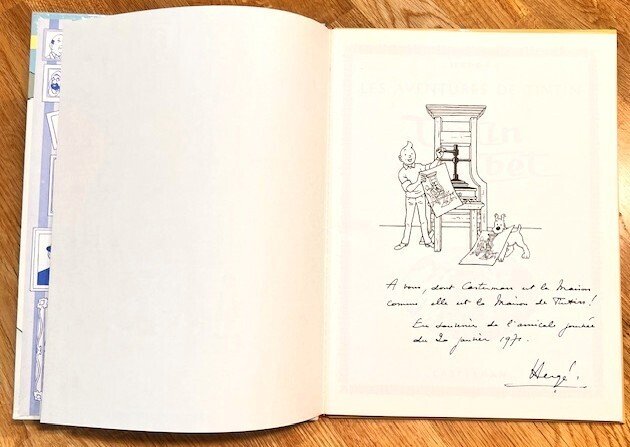 HERGÉ
LES AVENTURES DE TINTIN
A vous, dont Casterman est la Maison
comme elle est la Maison de Tintin!
En souvenir de l'amicale journée
du 20 janvier 1971.
Hergé.